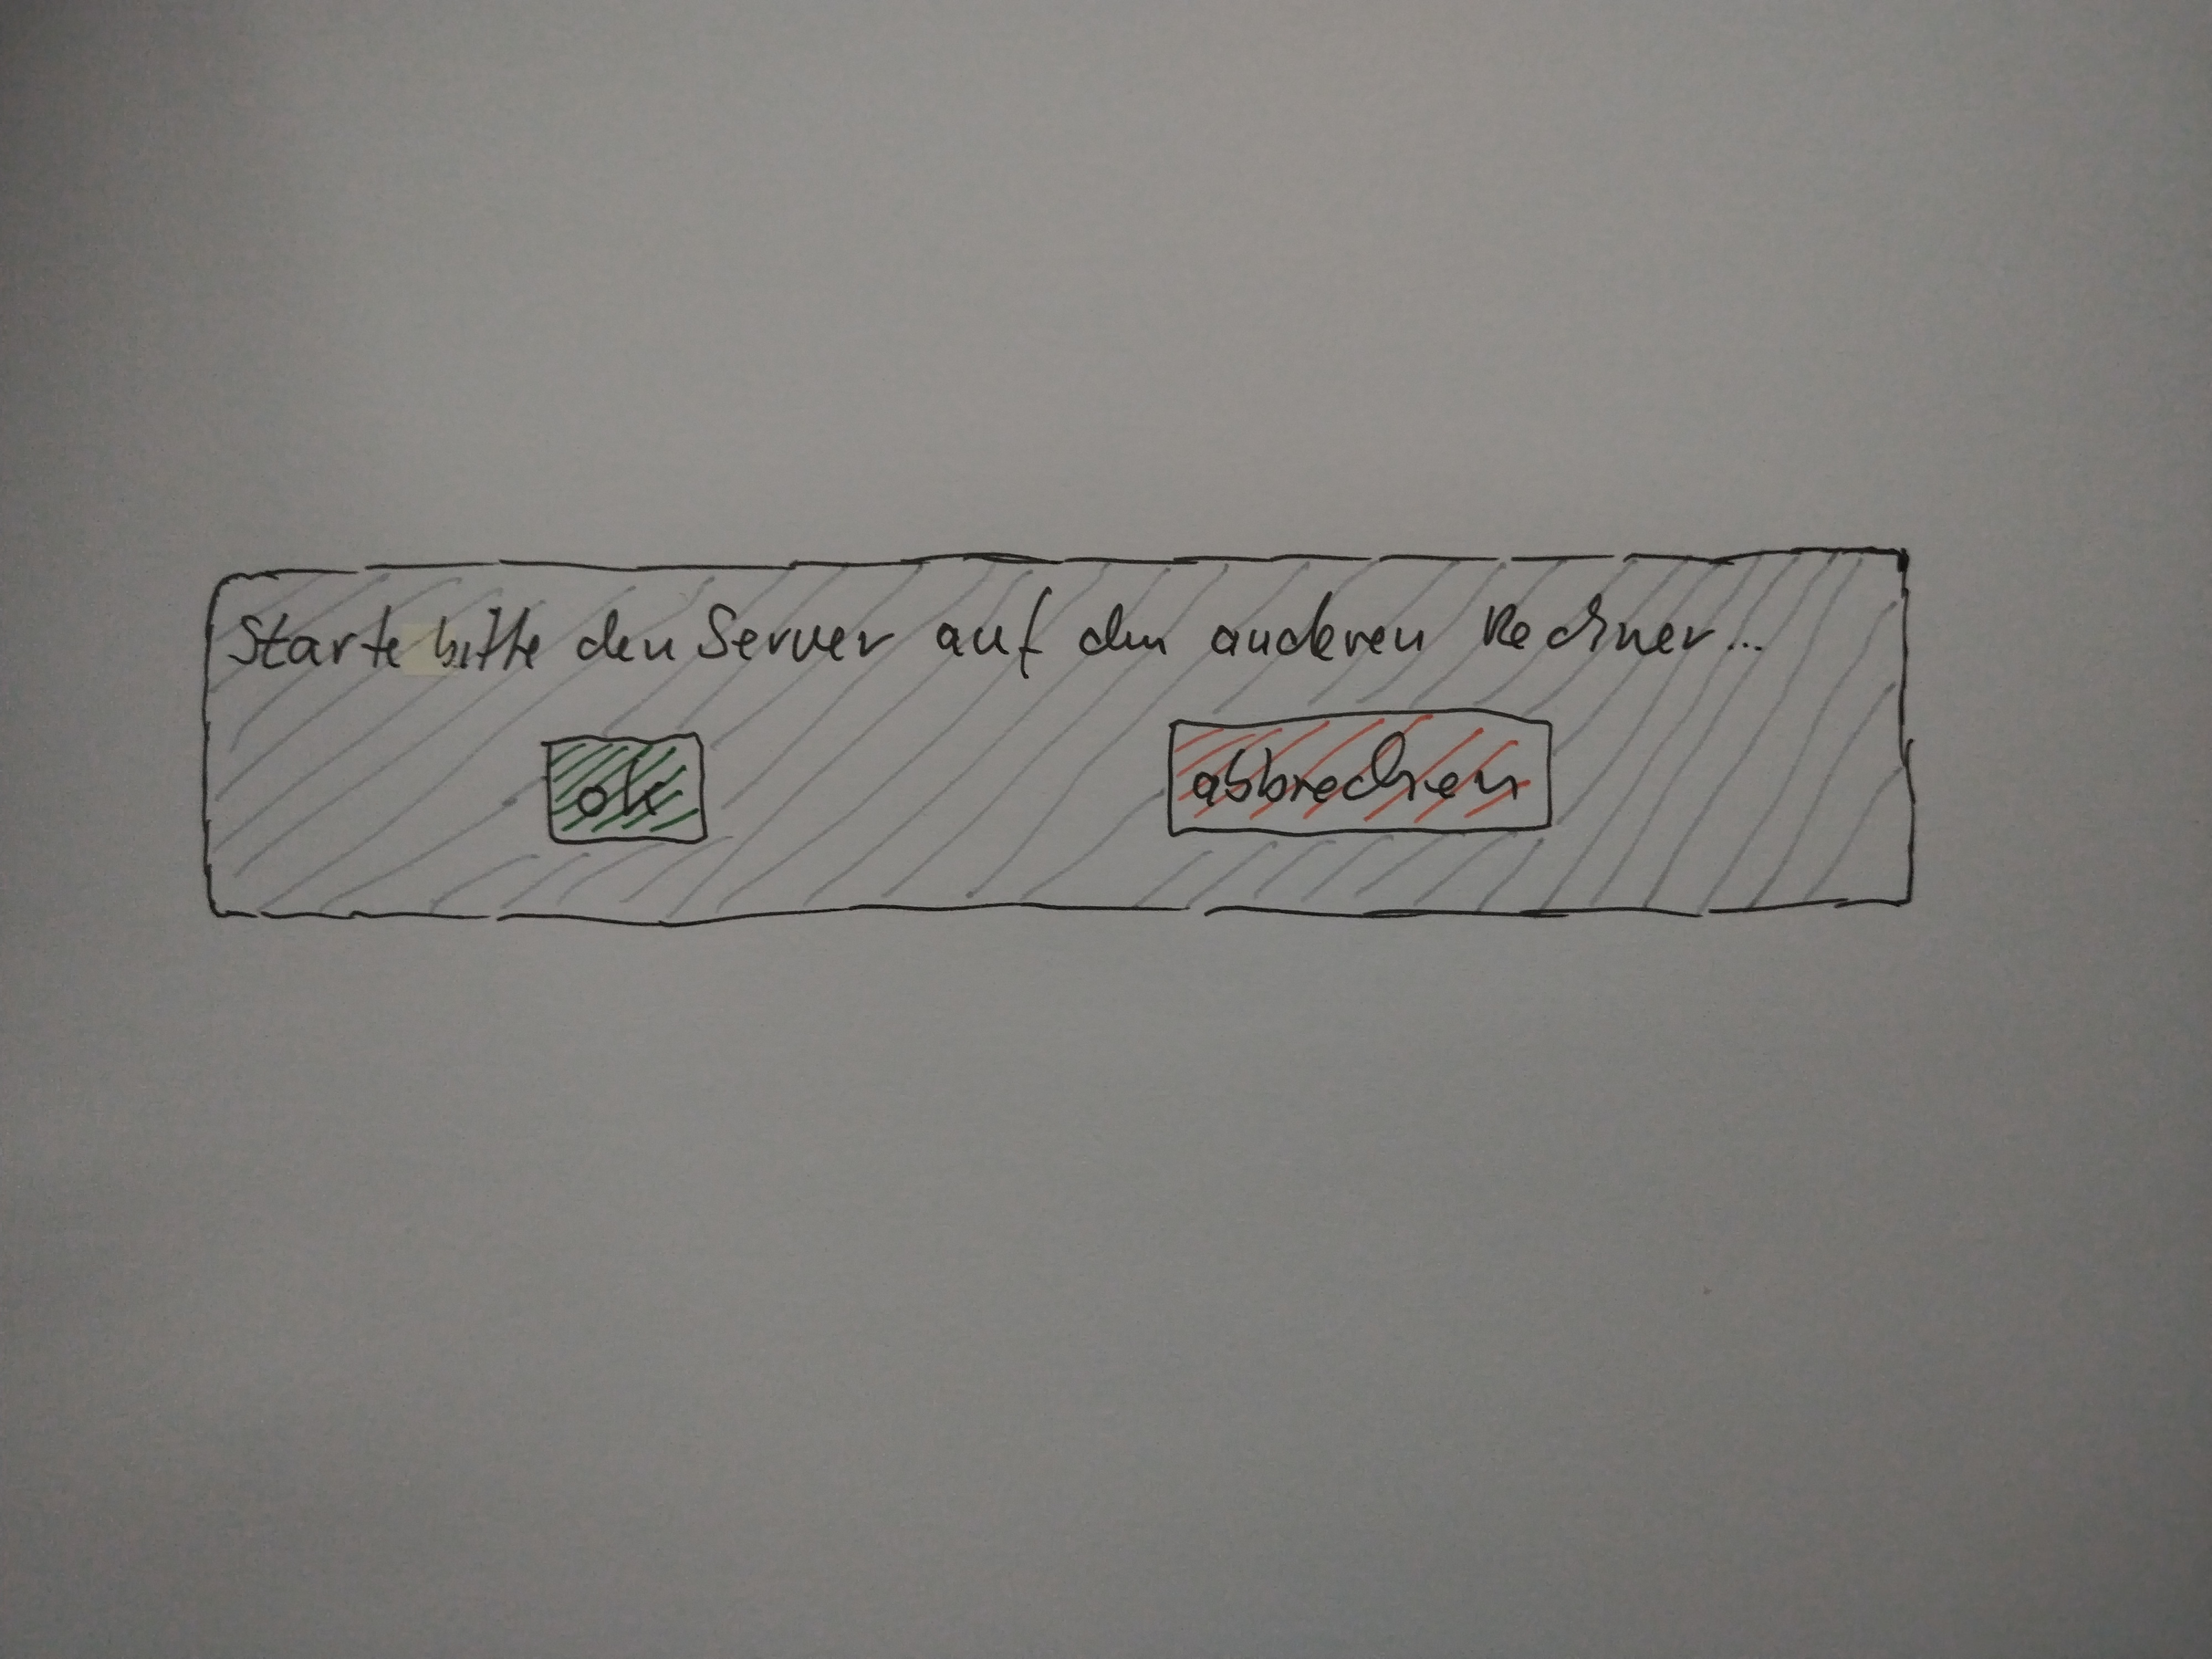 Starte bitte den Server auf dem anderen Rechner...
ok
abbrechen